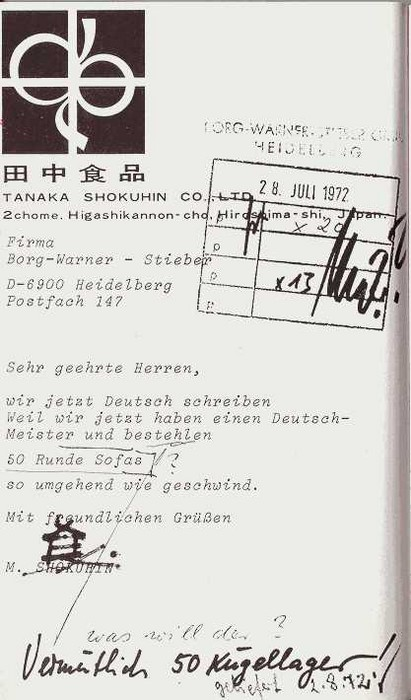 田中食品
TANAKA SHOKUHIN CO., LTD.
2chome, Higashikannon-cho, Hiroshima-shi, Japan.
BORG-WARNER-STIEBER
HEIDELBERG
28. JULI 1972
x 20
x 13
Firma
Borg-Warner - Stieber
D-6900 Heidelberg
Postfach 147
Sehr geehrte Herren,
wir jetzt Deutsch schreiben
Weil wir jetzt haben einen Deutsch-
Meister und bestehlen
50 Runde Sofas ?
so umgehend wie geschwind.
Mit freundlichen Grüßen
M. SHOKUHIN
was will der ?
Vermutlich 50 Kugellager!
geliefert 2.8.72